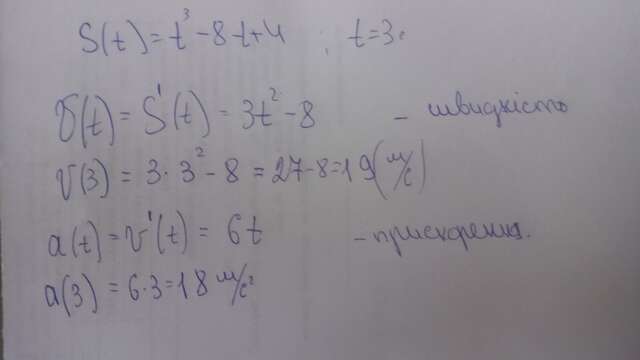 S(t) = t³ - 8t + 4 ; t = 3c
v(t) = S'(t) = 3t² - 8 - швидкість
v(3) = 3·3² - 8 = 27 - 8 = 19 (м/с)
a(t) = v'(t) = 6t - прискорення.
a(3) = 6·3 = 18 м/с²